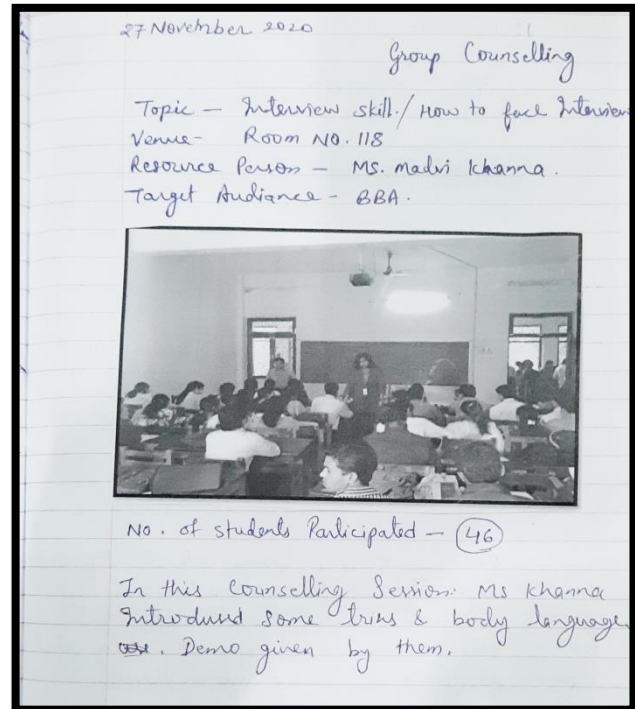 27 November 2020
Group Counselling
Topic — Interview skill./ How to face Interview
Venue- Room No. 118
Resource Person — Ms. Madvi Khanna.
Target Audiance - BBA.
No. of students Participated — 46
In this Counselling Session. Ms Khanna
Introdused some & body language
. Demo given by them.